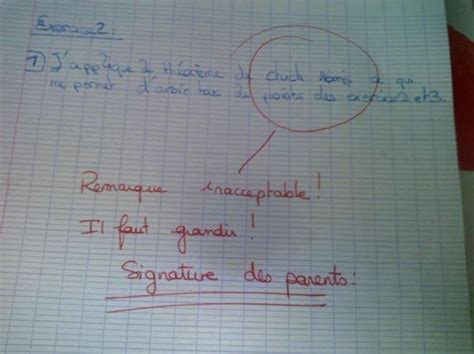 Exercice 2:
1 J'applique le théorème de chuck Norris ce qui
me permet d'avoir tous les points des exercice 2 et 3.
Remarque inacceptable!
Il faut grandir!
Signature des parents: